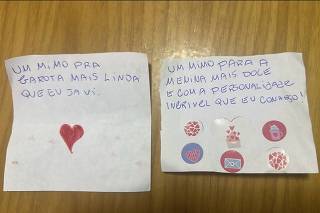 UM MIMO PRA
GAROTA MAIS LINDA
QUE EU JA VI.
UM MIMO PARA A
MENINA MAIS DOCE
E COM A PERSONALIDADE
INCRIVEL QUE EU CONHEÇO!